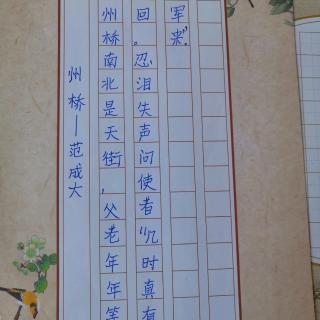 州桥—范成大
州桥南北是天街，父老年年等
回。忍泪失声问使者“几时真有
军来”